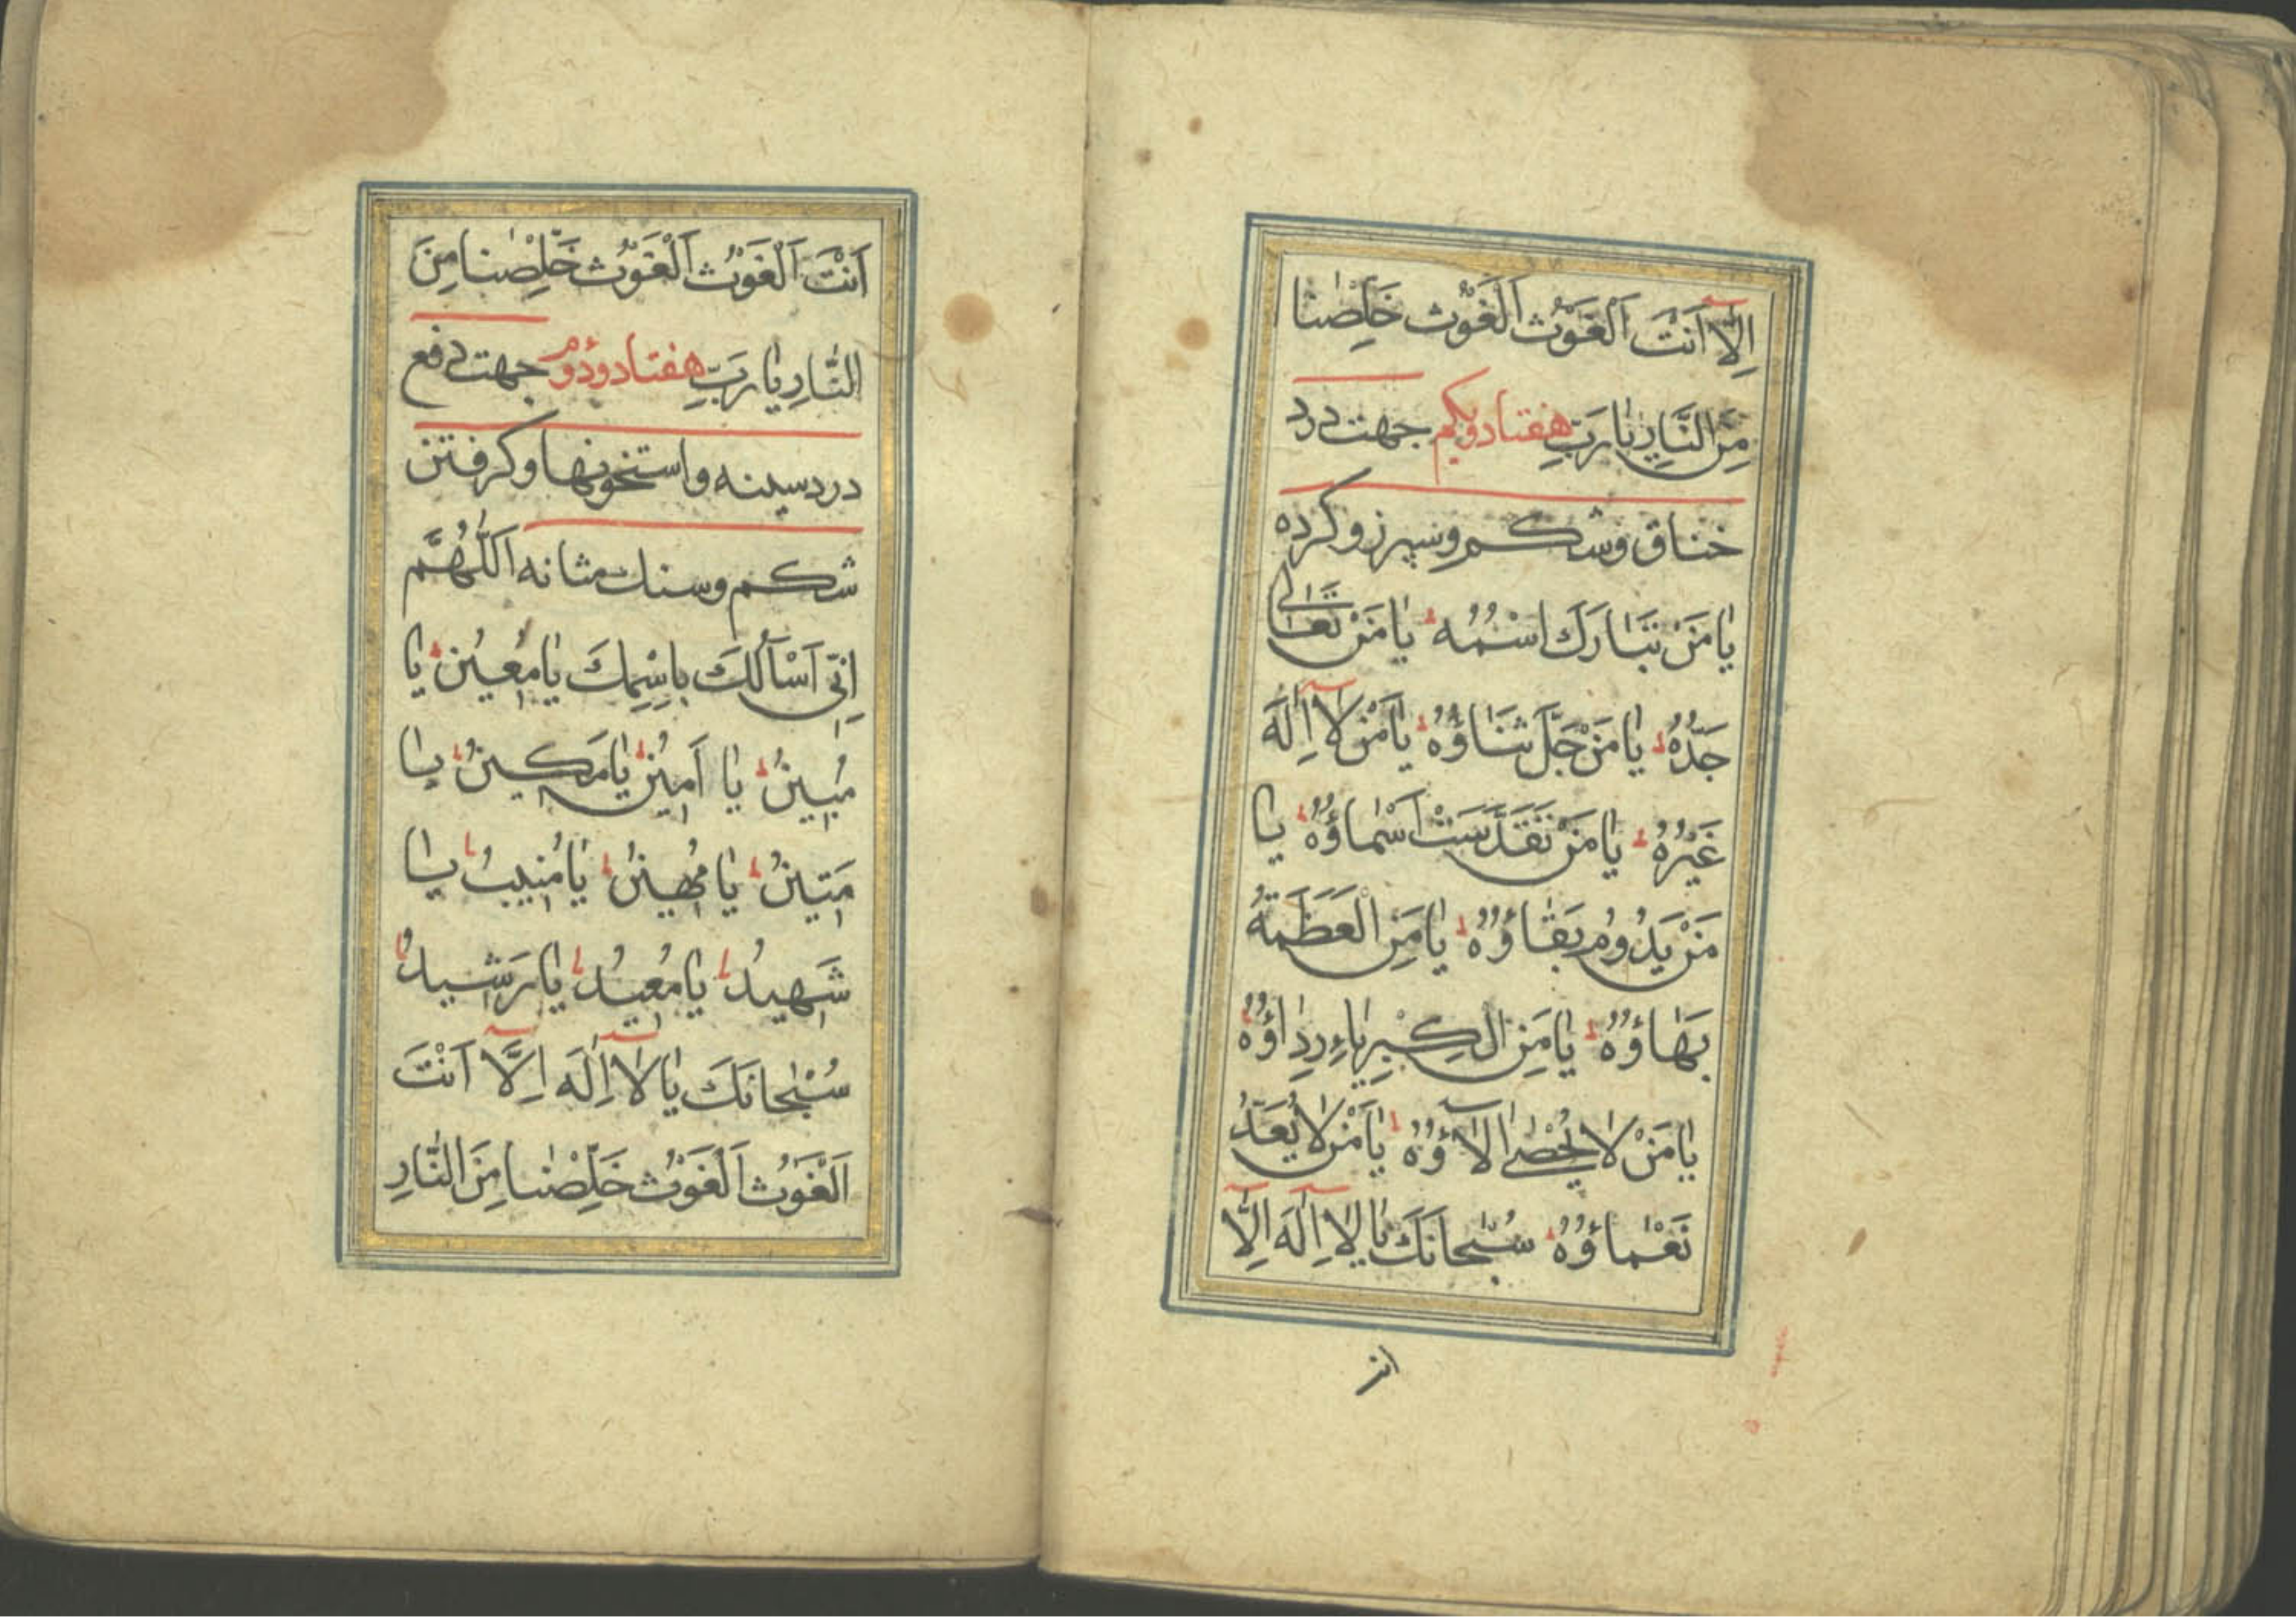 اِلّٰا اَنْتَ اَلْغَوْث اَلْغَوْث خَلِّصْنٰا
مِنَ النّٰارِ يٰا رَبِّ هفتاد ويكم جهت درد
خناق و شكم و سپرز و كرده
يٰا مَنْ تَبٰارَكَ اسْمُهُ يٰا مَنْ تَعٰالىٰ
جَدُّهُ يٰا مَنْ جَلَّ ثَنٰاؤُهُ يٰا مَنْ لٰا اِلٰهَ
غَيْرُهُ يٰا مَنْ تَقَدَّسَتْ اَسْمٰاؤُهُ يٰا
مَنْ يَدُومُ بَقٰاؤُهُ يٰا مَنِ الْعَظَمَةُ
بَهٰاؤُهُ يٰا مَنِ الْكِبْرِيٰاءِ رِدٰاؤُهُ
يٰا مَنْ لٰا يُحْصٰى اٰلٰاؤُهُ يٰا مَنْ لٰا يُعَدُّ
نَعْمٰاؤُهُ سُبْحٰانَكَ يٰا لٰا اِلٰهَ اِلّٰا
انت
اَنْتَ اَلْغَوْث اَلْغَوْث خَلِّصْنٰا مِنَ
النّٰارِ يٰا رَبِّ هفتاد و دوم جهت دفع
درد سينه و استخونها و كرفتن
شكم و سنك مثانه اَللّٰهُمَّ
اِنّى اَسْأَلُكَ بِاسْمِكَ يٰا مُعِينُ يٰا
مُبِينُ يٰا اَمِينُ يٰا مَكِينُ يٰا
مَتِينُ يٰا مُهِينُ يٰا مُنِيبُ يٰا
شَهِيدُ يٰا مُعِيدُ يٰا رَشِيدُ
سُبْحٰانَكَ يٰا لٰا اِلٰهَ اِلّٰا اَنْتَ
اَلْغَوْث اَلْغَوْث خَلِّصْنٰا مِنَ النّٰارِ